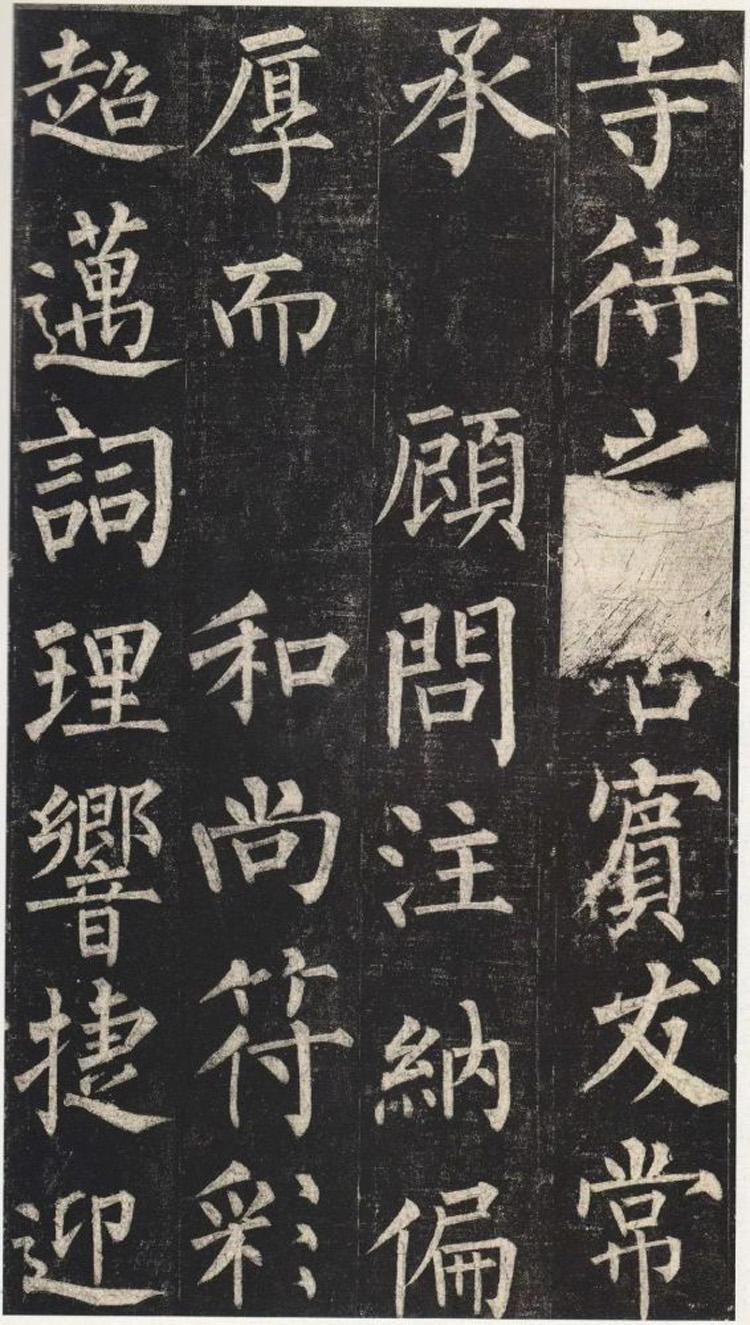 寺待之賓友常
承 顧問注納偏
厚而 和尚符彩
超邁詞理響捷迎